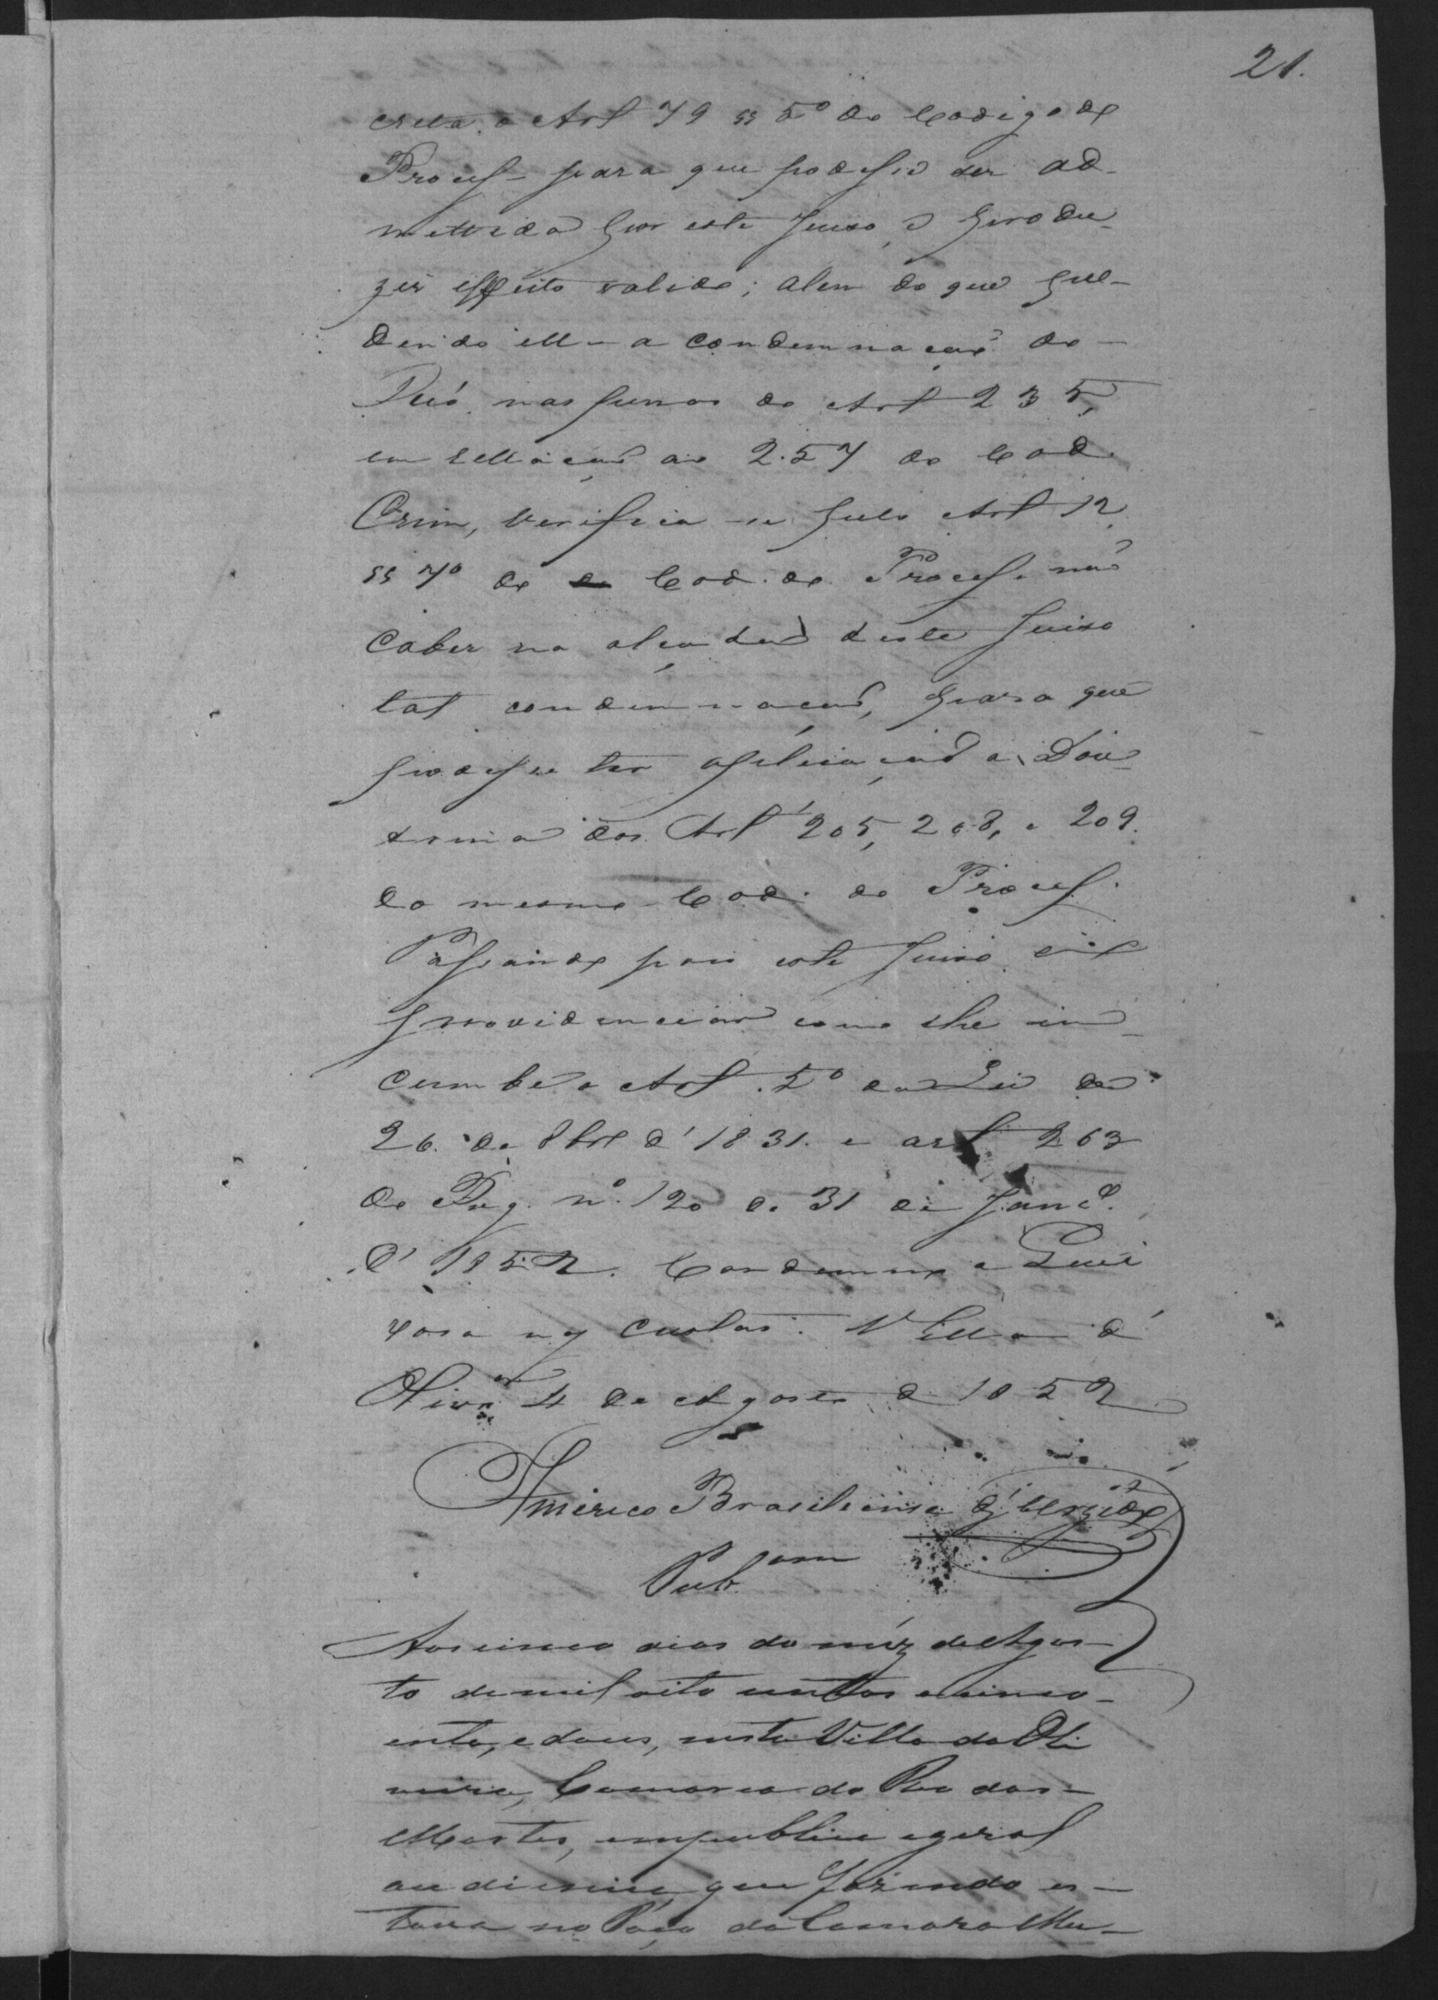 21.
creta o Art 79 §§ 5º do Codigo do
Process para que podesse ser ad-
mettida por este Juiso, e produ-
zir effeito valido; alem do que pe-
dindo ella a condemnação do
Réo nas penas do Art 235,
em rellação ao 257 do Cod.
Crim, verifica-se pelo Art 12
§§ 7º do Cod. do Process. não
caber na alçada deste Juiso
tal condemnação, para que
podesse ter applicação a Dou-
trina dos Art 205, 208, e 209.
do mesmo Cod. do Process.
Passando pois este Juiso
providenciar como lhe in-
cumbe o Art. 5º da Lei de
26. de 8br d' 1831. e art 263
do Reg. nº. 120 de 31 de Janº.
d' 1852. Condemno a Quei
xosa nas custas. Villa d'
Olivrª 4 de Agosto d 1852
Americo Brasiliense d'
Pubam
Aos cinco dias do mez de Agos-
to de mil oito centos e cinco-
enta, e dous, nesta Villa da Oli
veira, Comarca do Rio das-
Mortes, em publica e geral
audiencia que fazendo es-
tava no Paço da Camara Mu-